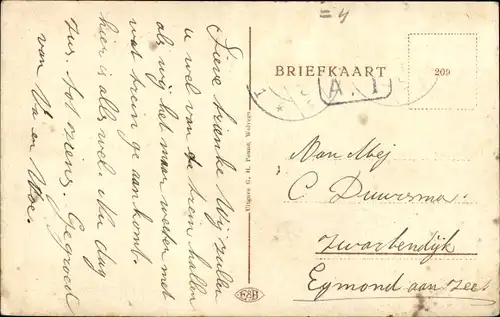 Lieve Trienke Wij zullen
u wel van de trein hallen
als wij het maar weeten met
wat trein ge aan komt.
hier is alles wel. Nu dag
zus. tot ziens. Gegroed
van Va en Moe.
Uitgave G. H. Wolvega
BRIEFKAART
209
A. 1
=4
F&B
Aan Mej
C Duursma
Zwartendijk
Egmond aan Zee